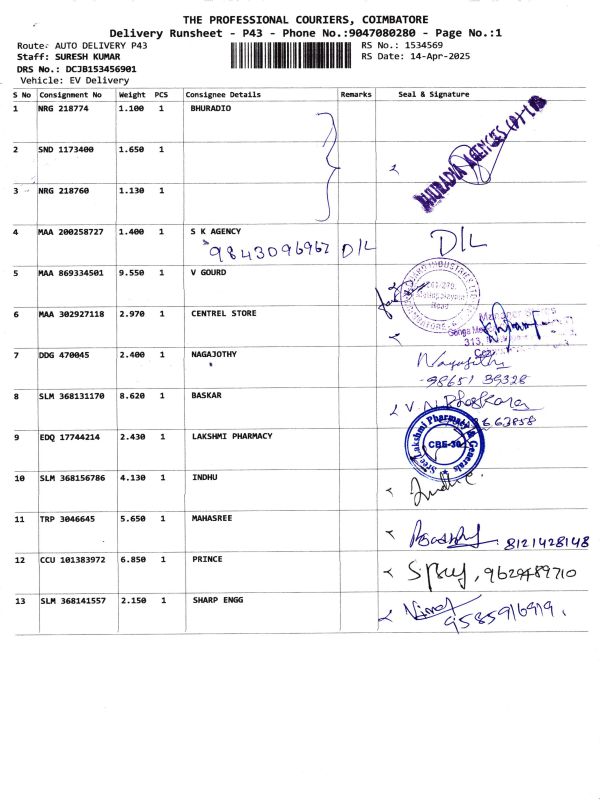 THE PROFESSIONAL COURIERS, COIMBATORE
Delivery Runsheet - P43 - Phone No.:9047080280 - Page No.:1
Route: AUTO DELIVERY P43 RS No.: 1534569
Staff: SURESH KUMAR RS Date: 14-Apr-2025
DRS No.: DCJB153456901
Vehicle: EV Delivery
S No Consignment No Weight PCS Consignee Details Remarks Seal & Signature
1 NRG 218774 1.100 1 BHURADIO
BHURADIA AGENCIES (P) LTD
2 SND 1173400 1.650 1
3 NRG 218760 1.130 1
4 MAA 200258727 1.400 1 S K AGENCY
9843096967 D/L D/L
5 MAA 869334501 9.550 1 V GOURD
6 MAA 302927118 2.970 1 CENTREL STORE
313,
7 DDG 470045 2.400 1 NAGAJOTHY
Nagajothi
98651 39328
8 SLM 368131170 8.620 1 BASKAR
V. N. Bhaskara
9 EDQ 17744214 2.430 1 LAKSHMI PHARMACY
Sree Lakshmi Pharmacy & Generals
CBE-30
10 SLM 368156786 4.130 1 INDHU
Indhu
11 TRP 3046645 5.650 1 MAHASREE
8121428148
12 CCU 101383972 6.850 1 PRINCE
9629489710
13 SLM 368141557 2.150 1 SHARP ENGG
9585916919.